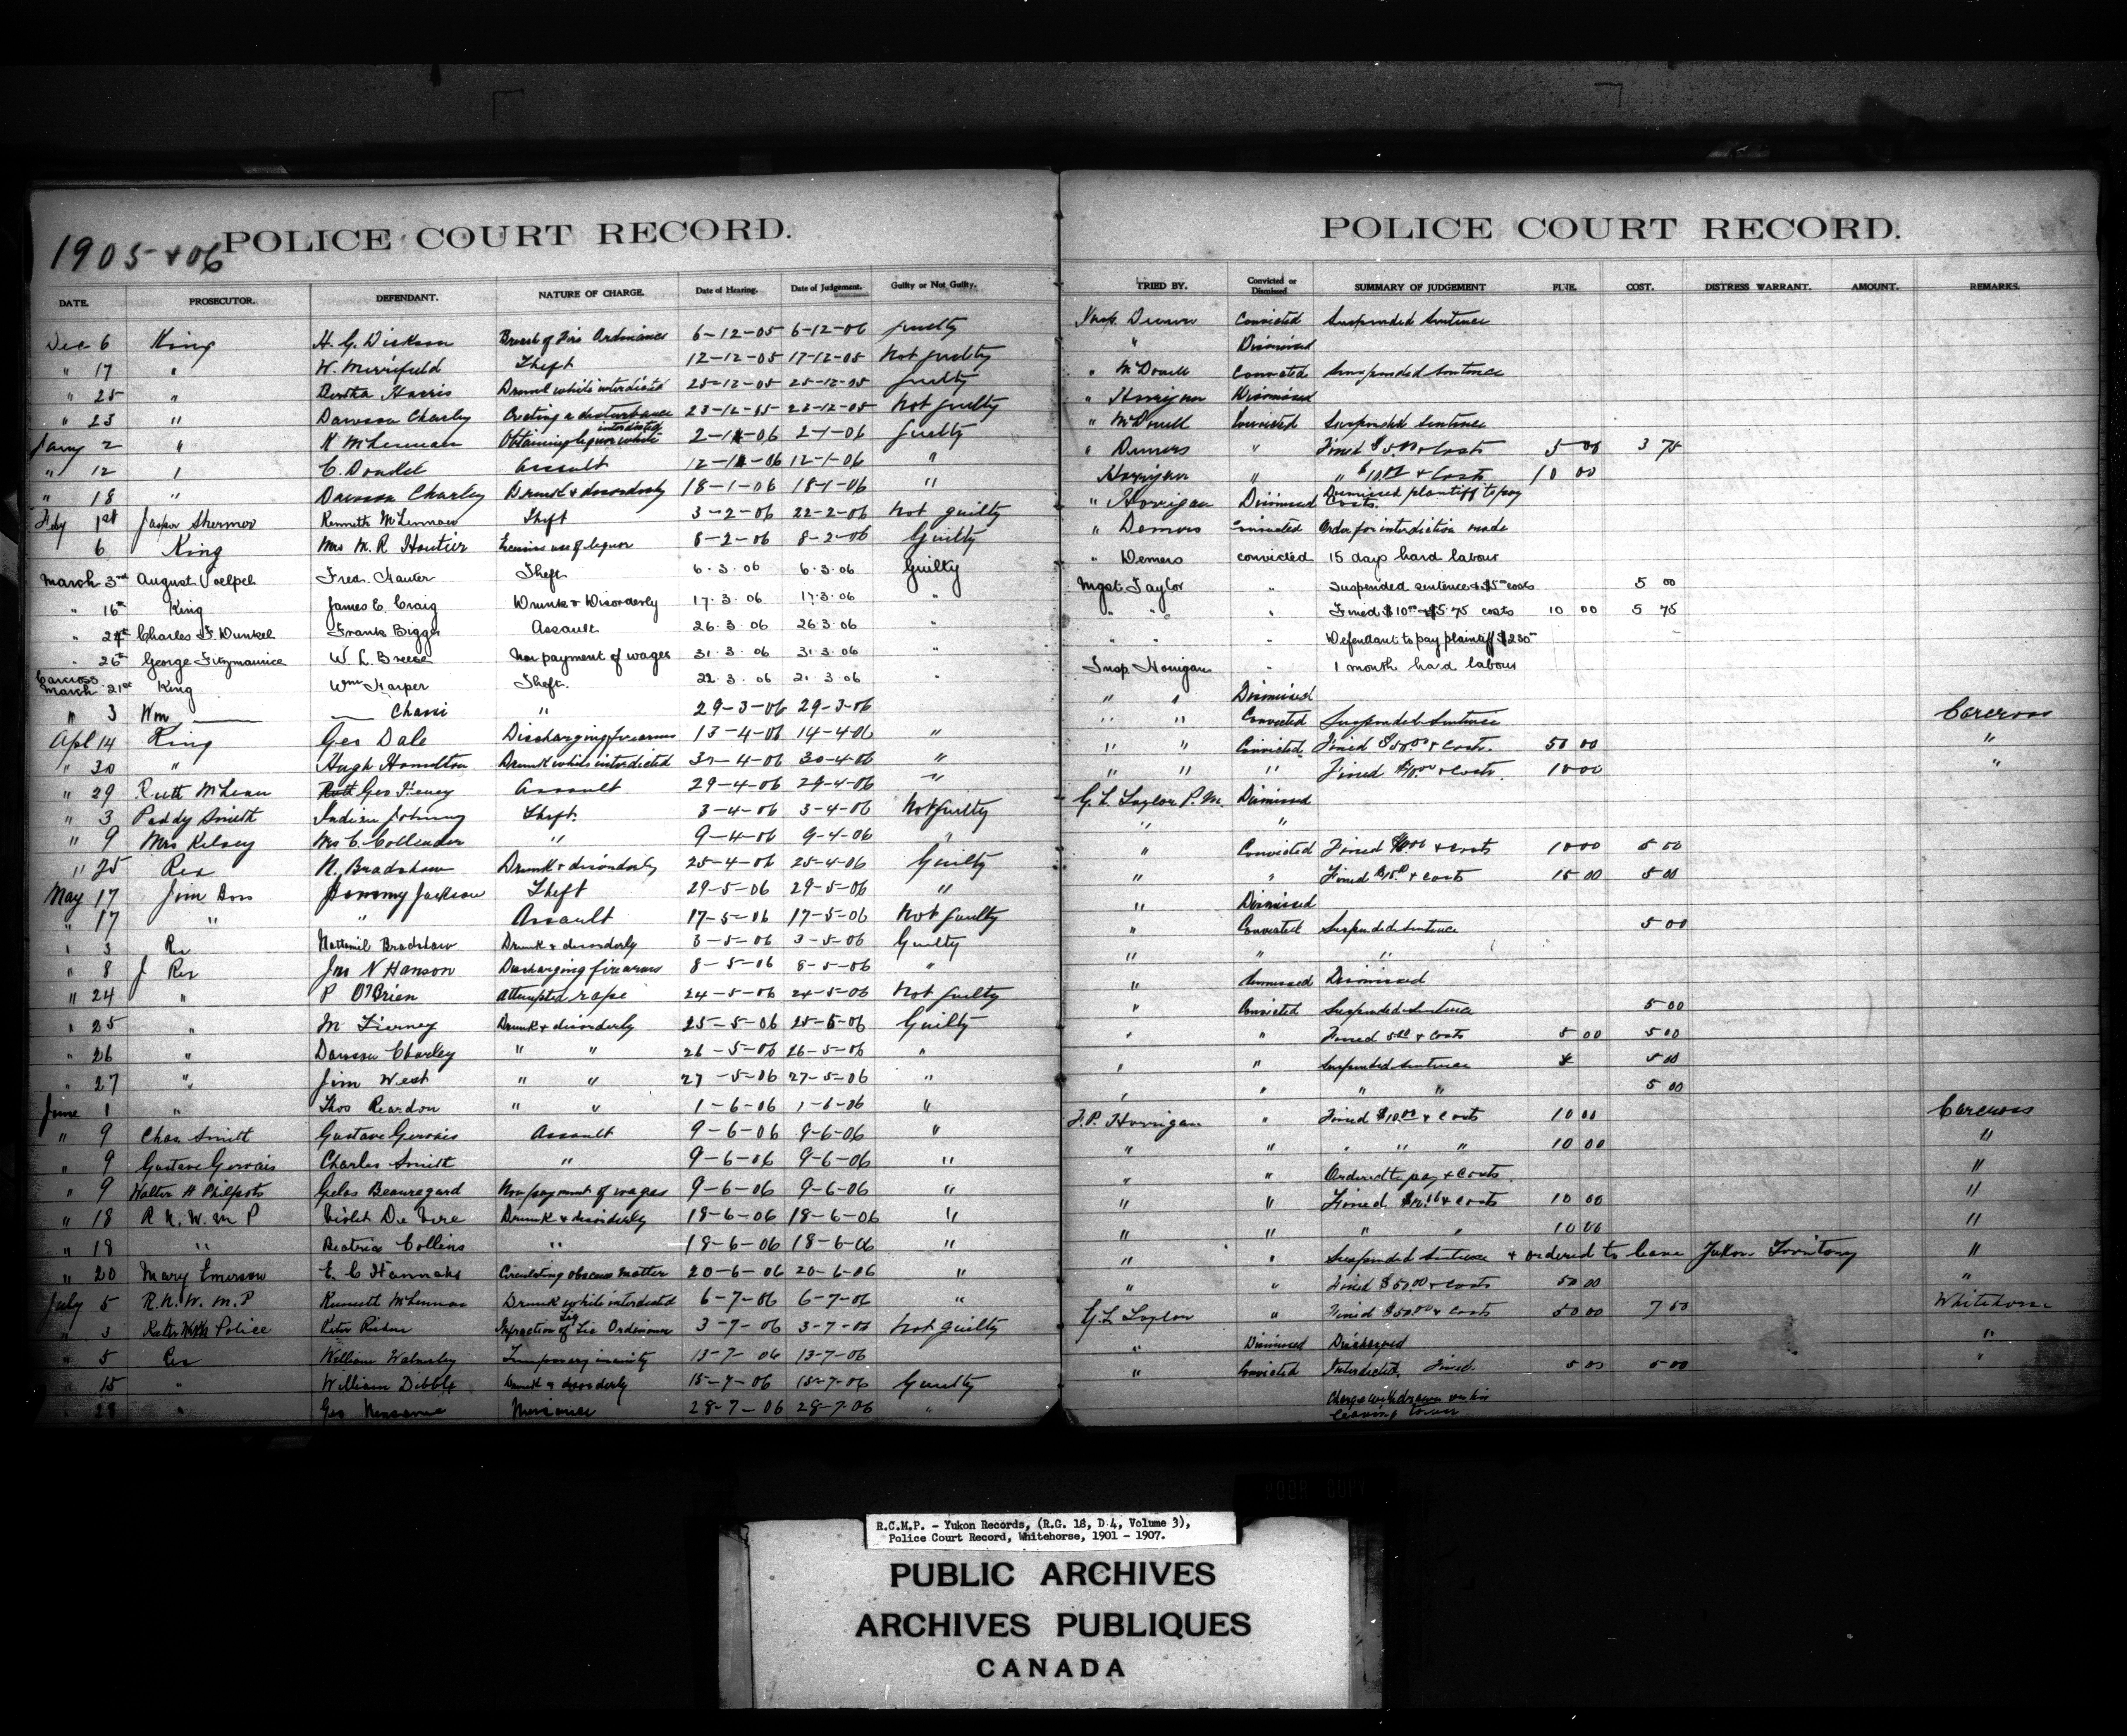 1905 & 06
POLICE COURT RECORD.
DATE. PROSECUTOR. DEFENDANT. NATURE OF CHARGE. Date of Hearing. Date of Judgement. Guilty or Not Guilty.
Dec 6 King H. G. Dickson Breach of Fire Ordinance 6-12-05 6-12-06 guilty
" 17 " W. Merrifield Theft 12-12-05 17-12-05 not guilty
" 25 " Bertha Harris Drunk while interdicted 25-12-05 25-12-05 guilty
" 23 " Dawson Charley Creating a disturbance 23-12-05 23-12-05 not guilty
Jany 2 " K McLennan Obtaining liquor while interdicted 2-1-06 2-1-06 guilty
" 12 " C. Dunkel Assault 12-1-06 12-1-06 "
" 18 " Dawson Charley Drunk & disorderly 18-1-06 18-1-06 "
Feby 1st Jasper Kenneth McLennan Theft 3-2-06 22-2-06 not guilty
6 King Mrs M. R Excessive use of liquor 8-2-06 8-2-06 Guilty
March 3rd August Voelpel Fred. Hauter Theft 6.3.06 6.3.06 Guilty
" 16th King James E. Craig Drunk & Disorderly 17.3.06 17.3.06 "
" 24th Charles F. Dunkel Frank Biggs Assault 26.3.06 26.3.06 "
" 26th George Fitzmaurice W. L. Breese Non payment of wages 31.3.06 31.3.06 "
Carcross
March 21st King Wm Harper Theft. 22.3.06 21.3.06 "
" 3 Wm —— —— " 29-3-06 29-3-06
Apl 14 King Geo Dale Discharging firearms 13-4-06 14-4-06 "
" 30 " Hugh Hamilton Drunk while interdicted 30-4-06 30-4-06 "
" 29 Ruth McLean Geo Assault 29-4-06 29-4-06 "
" 3 Paddy Smith Indian Johnny Theft. 3-4-06 3-4-06 Not guilty
" 9 Mrs Kelsey Mrs C. Collender " 9-4-06 9-4-06 "
" 25 Rex N. Bradshaw Drunk & disorderly 25-4-06 25-4-06 Guilty
May 17 Jim Boss Jackson Theft 29-5-06 29-5-06 "
" 17 " " Assault 17-5-06 17-5-06 Not guilty
" 3 Rex Bradshaw Drunk & disorderly 3-5-06 3-5-06 Guilty
" 8 Rex Jno N Hanson Discharging firearms 8-5-06 8-5-06 "
" 24 " P O'Brien attempted rape 24-5-06 24-5-06 Not guilty
" 25 " M Tierney Drunk & disorderly 25-5-06 25-5-06 Guilty
" 26 " Dawson Charley " " 26-5-06 26-5-06 "
" 27 " Jim West " " 27-5-06 27-5-06 "
June 1 " Thos Reardon " " 1-6-06 1-6-06 "
" 9 Chas Smith Gustave Gervais Assault 9-6-06 9-6-06 "
" 9 Gustave Gervais Charles Smith " 9-6-06 9-6-06 "
" 9 Walter H Philpots Gelas Beauregard Non payment of wages 9-6-06 9-6-06 "
" 18 R. N. W. M P Violet De Vere Drunk & disorderly 18-6-06 18-6-06 "
" 18 " Beatrice Collins " 18-6-06 18-6-06 "
" 20 Mary Emerson E. C Hannahs Circulating obscene matter 20-6-06 20-6-06 "
July 5 R. N. W. M. P Kenneth McLennan Drunk while interdicted 6-7-06 6-7-06 "
" 3 Police Peter Infraction of Liq Lic Ordinance 3-7-06 3-7-06 Not guilty
" 5 Rex William Walmsley Temporary insanity 13-7-06 13-7-06
15 " William Dibble Drunk & disorderly 15-7-06 15-7-06 Guilty
28 " Geo Nuisance 28-7-06 28-7-06 "
POLICE COURT RECORD.
TRIED BY. Convicted or Dismissed SUMMARY OF JUDGEMENT FINE. COST. DISTRESS WARRANT. AMOUNT. REMARKS.
Insp. Demers Convicted Suspended Sentence
" Dismissed
" McDonell Convicted Suspended Sentence
" Horrigan Dismissed
" McDonell Convicted Suspended Sentence
" Demers " Fined $5.00 & Costs 5 00 3 75
Horrigan " " $10.00 & Costs 10 00
" Horrigan Dismissed Dismissed plantiff to pay Costs.
" Demers Convicted Order for interdiction made
" Demers convicted 15 days hard labour
Mgst. Taylor " Suspended sentence & $5.00 costs 5 00
" " " Fined $10.00 & $5.75 costs 10 00 5 75
" " " Defendant to pay plaintiff $230.00
Insp Horrigan " 1 month hard labour
" " Dismissed
" " Convicted Suspended Sentence Carcross
" " Convicted Fined $50.00 & Costs. 50 00 "
" " " Fined $10.00 & Costs. 10 00 "
G. L. Taylor P. M. Dismissed
" "
" Convicted Fined $10.00 & costs 10 00 5 00
" " Fined $15.00 & costs 15 00 5 00
" Dismissed
" Convicted Suspended Sentence 5 00
" " "
" Dismissed Dismissed
" Convicted Suspended Sentence 5 00
" " Fined 5.00 & costs 5 00 5 00
" " Suspended Sentence 5 00
" " " " 5 00
F. P. Horrigan " Fined $10.00 & costs 10 00 Carcross
" " " " " 10 00 "
" " Ordered to pay & costs. "
" " Fined $10.00 & costs 10 00 "
" " " " 10 00 "
" " Suspended Sentence & ordered to leave Yukon Territory "
" " Fined $50.00 & costs 50 00 "
G. L Taylor " Fined $50.00 & costs 50 00 7 50 Whitehorse
" Dismissed Discharged "
" Convicted Interdicted, Fined. 5 00 5 00 "
Charge withdrawn on his
leaving town
R.C.M.P. - Yukon Records, (R.G. 18, D 4, Volume 3),
Police Court Record, Whitehorse, 1901 - 1907.
PUBLIC ARCHIVES
ARCHIVES PUBLIQUES
CANADA